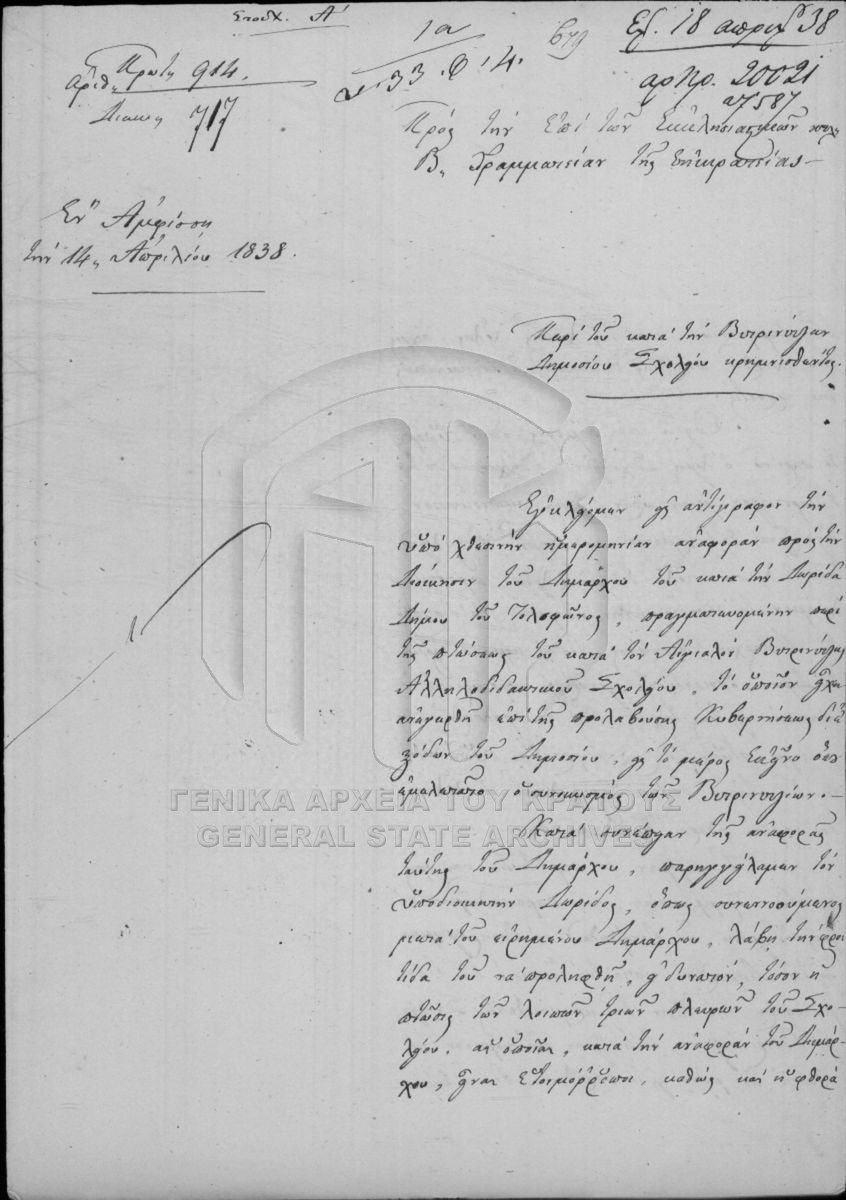 1α
Ἐλ. 18 απριλ 38
Πρωτ. 914.
Ἀριθ.
Διεκπ. 717
33. Θ. 4.
αρ πρ. 20021
Πρὸς τὴν ἐπὶ τῶν Ἐκκλησιαστικῶν
Β. Γραμματείαν τῆς ἐπικρατείας
Ἐν Ἀμφίσση
τὴν 14 Ἀπριλίου 1838.
Περὶ τοῦ κατὰ τὴν Βιτρινίτζαν
Δημοσίου Σχολείου κρημνισθέντος.
Ἐγκλείομεν εἰς ἀντίγραφον τὴν
ὑπὸ χθεσινὴν ἡμερομηνίαν ἀναφορὰν πρὸς τὴν
Διοίκησιν τοῦ Δημάρχου τοῦ κατὰ τὴν Δωρίδα
Δήμου τοῦ Τολοφῶνος, πραγματευομένην περὶ
τῆς πτώσεως τοῦ κατὰ τὸν Αἰγιαλὸν Βιτρινίτζης
Ἀλληλοδιδακτικοῦ Σχολείου, τὸ ὁποῖον εἶχεν
ἀνεγερθῆ ἐπὶ τῆς προλαβούσης Κυβερνήσεως δι'
ἐξόδων τοῦ Δημοσίου, εἰς τὸ μέρος ἐκεῖνο ὅπου
ἐμελετᾶτο ὁ συνοικισμὸς τῶν Βιτρινιτζίων.
Κατὰ συνέπειαν τῆς ἀναφορᾶς
ταύτης τοῦ Δημάρχου, παρηγγείλαμεν τὸν
ὑποδιοικητὴν Δωρίδος, ὅπως συνεννοούμενος
μετὰ τοῦ εἰρημένου Δημάρχου, λάβῃ τὴν φρον
τίδα τοῦ νὰ προληφθῆ, εἰ δυνατὸν, τόσον ἡ
πτῶσις τῶν λοιπῶν τριῶν πλευρῶν τοῦ Σχο-
λείου, αἱ ὁποῖαι, κατὰ τὴν ἀναφορὰν τοῦ Δημάρ-
χου, εἶναι ἑτοιμόῤῥοποι, καθὼς καὶ ἡ φθορὰ
ΓΕΝΙΚΑ ΑΡΧΕΙΑ ΤΟΥ ΚΡΑΤΟΥΣ
GENERAL STATE ARCHIVES